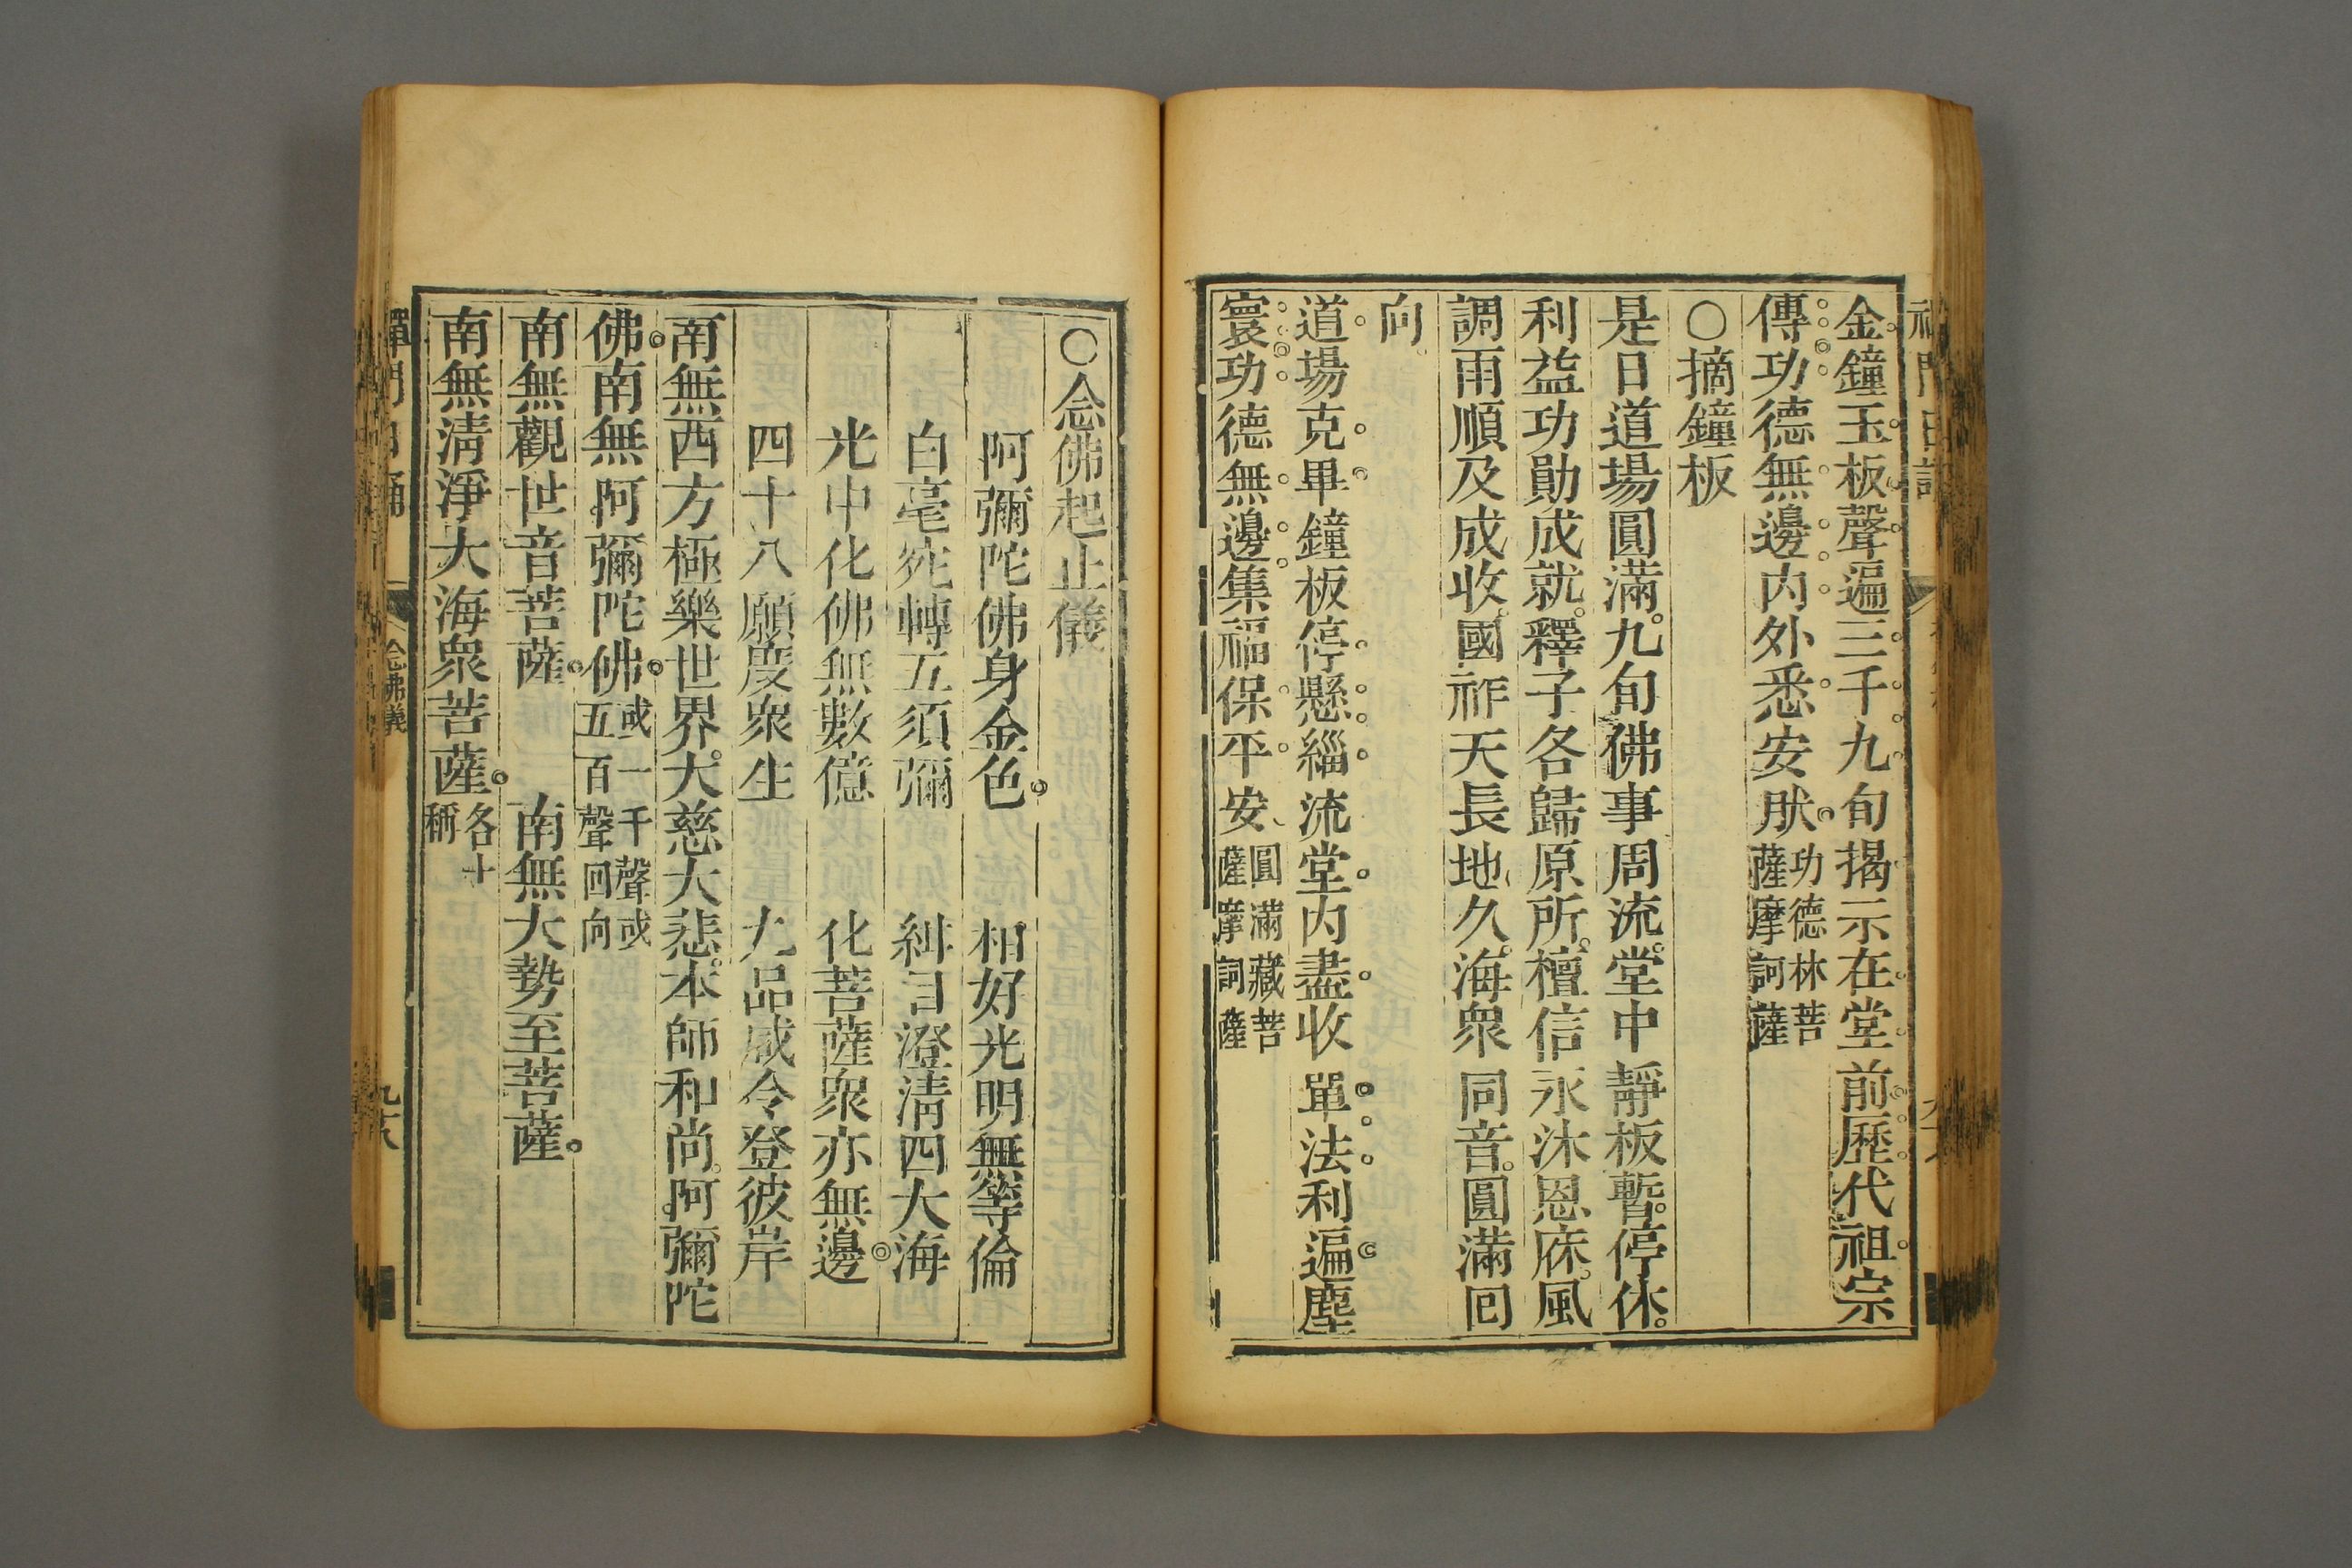 金鐘玉板聲遍三千九旬揭示在堂前歷代祖宗
傳功德無邊內外悉安肰功德林菩薩摩訶薩
〇摘鐘板
是日道場圓滿。九旬佛事周流。堂中靜板暫停休。
利益功勛成就。釋子各歸原所。檀信永沐恩庥。風
調雨順及成收。國祚天長地久。海衆同音。圓滿回
向
道場克畢鐘板停懸緇流堂內盡收單法利遍塵
寰功德無邊集福保平安圓滿藏菩薩摩訶薩
〇念佛起止儀
阿彌陀佛身金色 相好光明無等倫
白毫宛轉五須彌 紺目澄清四大海
光中化佛無數億 化菩薩衆亦無邊
四十八願度衆生 九品咸令登彼岸
南無西方極樂世界。大慈大悲。本師和尚。阿彌陀
佛南無阿彌陀佛或一千聲或五百聲回向
南無觀世音菩薩 南無大勢至菩薩
南無清淨大海衆菩薩各十稱
禪門日誦 念佛儀 九十八